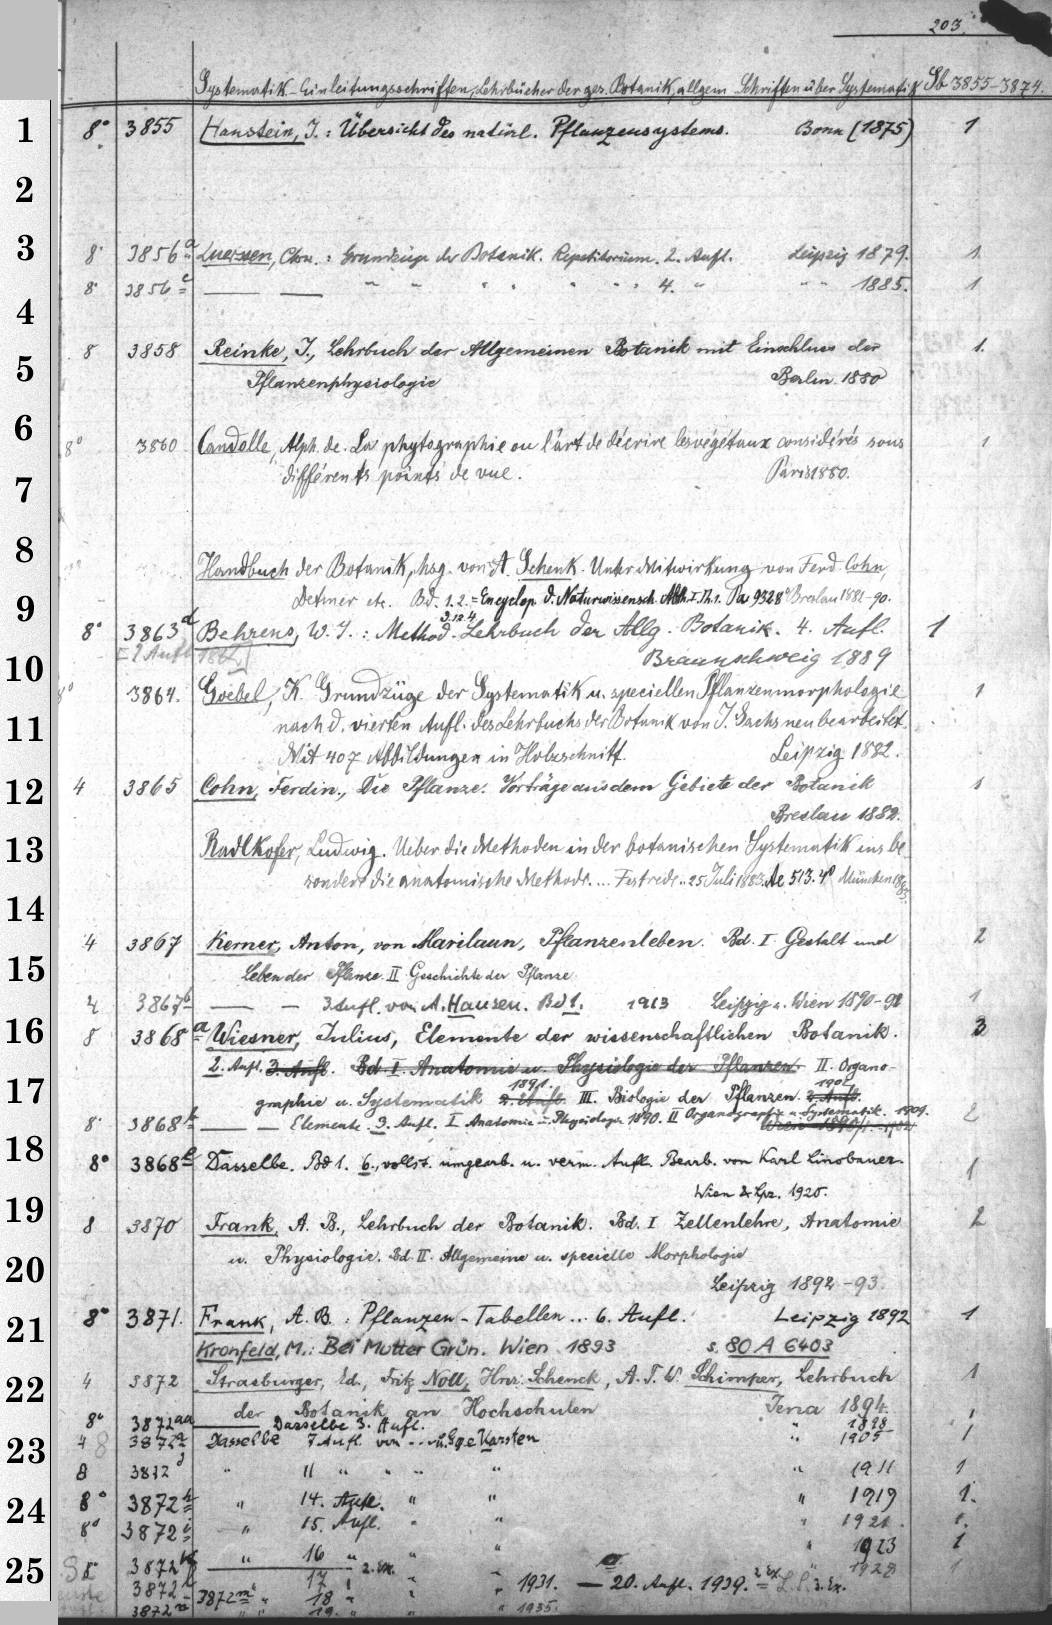 203.
Systematik - Einleitungsschriften, Lehrbücher der ges. Botanik, allgem. Schriften über Systematik Sb 3855-3874.
1 8° 3855 Hanstein, J.: Übersicht des natürl. Pflanzensystems. Bonn (1875) 1
2
3 8° 3856 a Luerssen, Chn.: Grundzüge der Botanik. Repetitorium. 2. Aufl. Leipzig 1879. 1.
8° 3856 c — — " " " " " " 4. " " " 1885. 1
4
8 3858 Reinke, J., Lehrbuch der Allgemeinen Botanik mit Einschluss der 1.
5 Pflanzenphysiologie Berlin. 1880
6 8° 3860 Candolle, Alph. de. La phytographie ou l'art de décrire les végétaux considérés sous 1
7 différents points de vue. Paris 1880.
8 Handbuch der Botanik, hsg. von A. Schenk. Unter Mitwirkung von Ferd. Cohn,
9 Detmer etc. Bd. 1. 2. 3,1.2. 4 = Encyclop. d. Naturwissensch. Abth. I. Th. 1. Pa 9328° Breslau 1881-90.
8° 3863 d Behrens, W. J.: Method. Lehrbuch der Allg. Botanik. 4. Aufl. 1
10 Braunschweig 1889
8° 3864. Goebel, K. Grundzüge der Systematik u. speciellen Pflanzenmorphologie 1
11 nach d. vierten Aufl. des Lehrbuchs der Botanik von J. Sachs neu bearbeitet.
Mit 407 Abbildungen in Holzschnitt. Leipzig 1882.
12 4 3865 Cohn, Ferdin., Die Pflanze. Vorträge aus dem Gebiete der Botanik 1
Breslau 1882.
13 Radlkofer, Ludwig. Ueber die Methoden in der botanischen Systematik ins be
sondere die anatomische Methode.... Festrede.. 25 Juli 1883. Ae 513. 4° München 1883.
14
4 3867 Kerner, Anton, von Marilaun, Pflanzenleben. Bd. I Gestalt und 2
15 Leben der Pflanze. II Geschichte der Pflanze.
4 3867 b — — 3. Aufl. von A. Hansen. Bd 1. 1913 Leipzig u. Wien 1890-91 1
16 8 3868 a Wiesner, Julius, Elemente der wissenschaftlichen Botanik. 3
2. Aufl. 3. Aufl. Bd I. Anatomie u. Physiologie der Pflanzen. II. Organo-
17 graphie u. Systematik 1891. 2. Aufl. III. Biologie der Pflanzen. 1902. 2. Aufl.
8° 3868 b — — Elemente. 3. Aufl. I Anatomie u. Physiologie 1890. II Organographie u. Systematik. 1909. 2
18 8° 3868 e Dasselbe. Bd 1. 6., vollst. umgearb. u. verm. Aufl. Bearb. von Karl Linsbauer. 1
Wien & Lpz. 1920.
19 8 3870 Frank, A. B., Lehrbuch der Botanik. Bd. I Zellenlehre, Anatomie 2
20 u. Physiologie. Bd. II. Allgemeine u. specielle Morphologie
Leipzig 1892-93.
21 8° 3871. Frank, A. B.: Pflanzen-Tabellen ... 6. Aufl. Leipzig 1892 1
Kronfeld, M.: Bei Mutter Grün. Wien 1893 s. 80 A 6403
22 4 3872 Strasburger, Ed., Fritz Noll, Hnr. Schenck, A. F. W. Schimper, Lehrbuch 1
der Botanik an Hochschulen Jena 1894.
8° 3872 aa — Dasselbe 3. Aufl. 1898 1
23 4 8 3872 a Dasselbe 7 Aufl. von ... u. Gge Karsten " 1905 1
8 3872 " 11 " " " " " 1911 1
24 8° 3872 h " 14. Aufl. " " " 1919 1.
8° 3872 i " 15. Aufl. " " " 1921. 1.
3872 k " 16 " " " 1923 1
25 3872 l — 17 " 2. Ex. " " 1928 1
3872 m 18 " " " 1931. — 20. Aufl. 1939. 2 Ex. 3. Ex.
3872 n " " 19. " " " 1935.